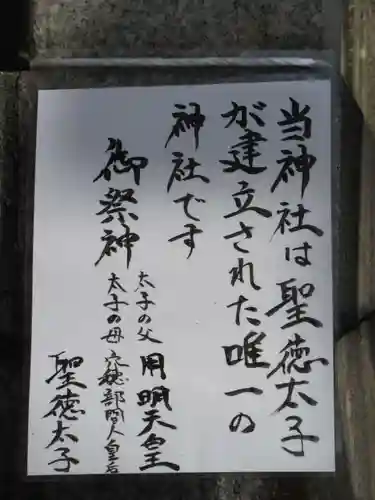 当神社は聖徳太子
が建立された唯一の
神社です
御祭神
太子の父 用明天皇
太子の母 穴穂部間人皇后
聖徳太子